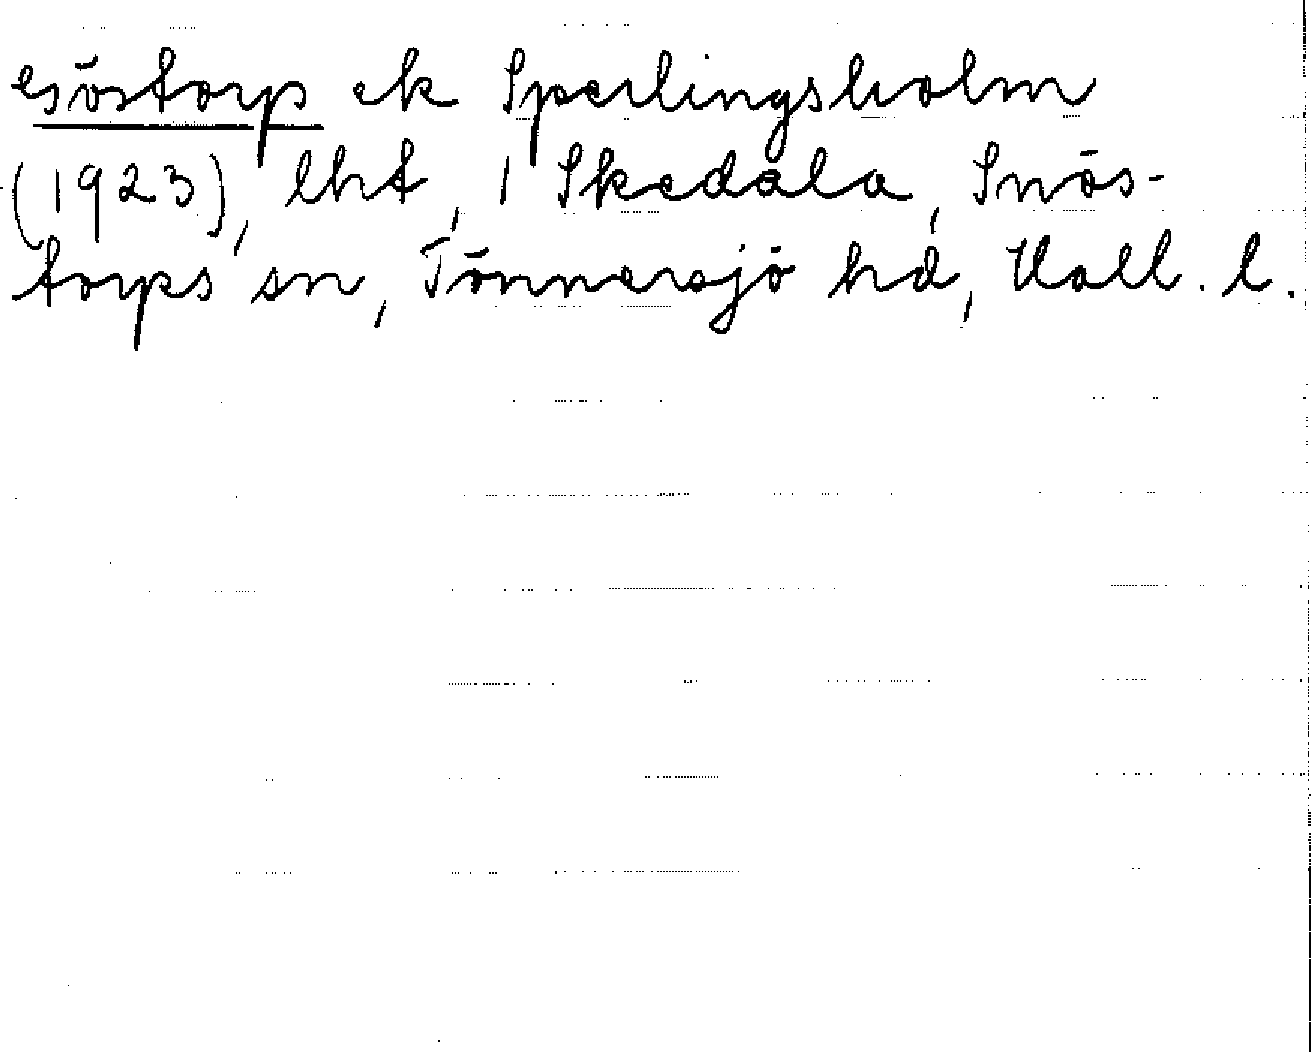 ek Sperlingsholm
(1923), lht, 1 Skedala, Snös-
torps sn, Tönnersjö hd, Hall. l.